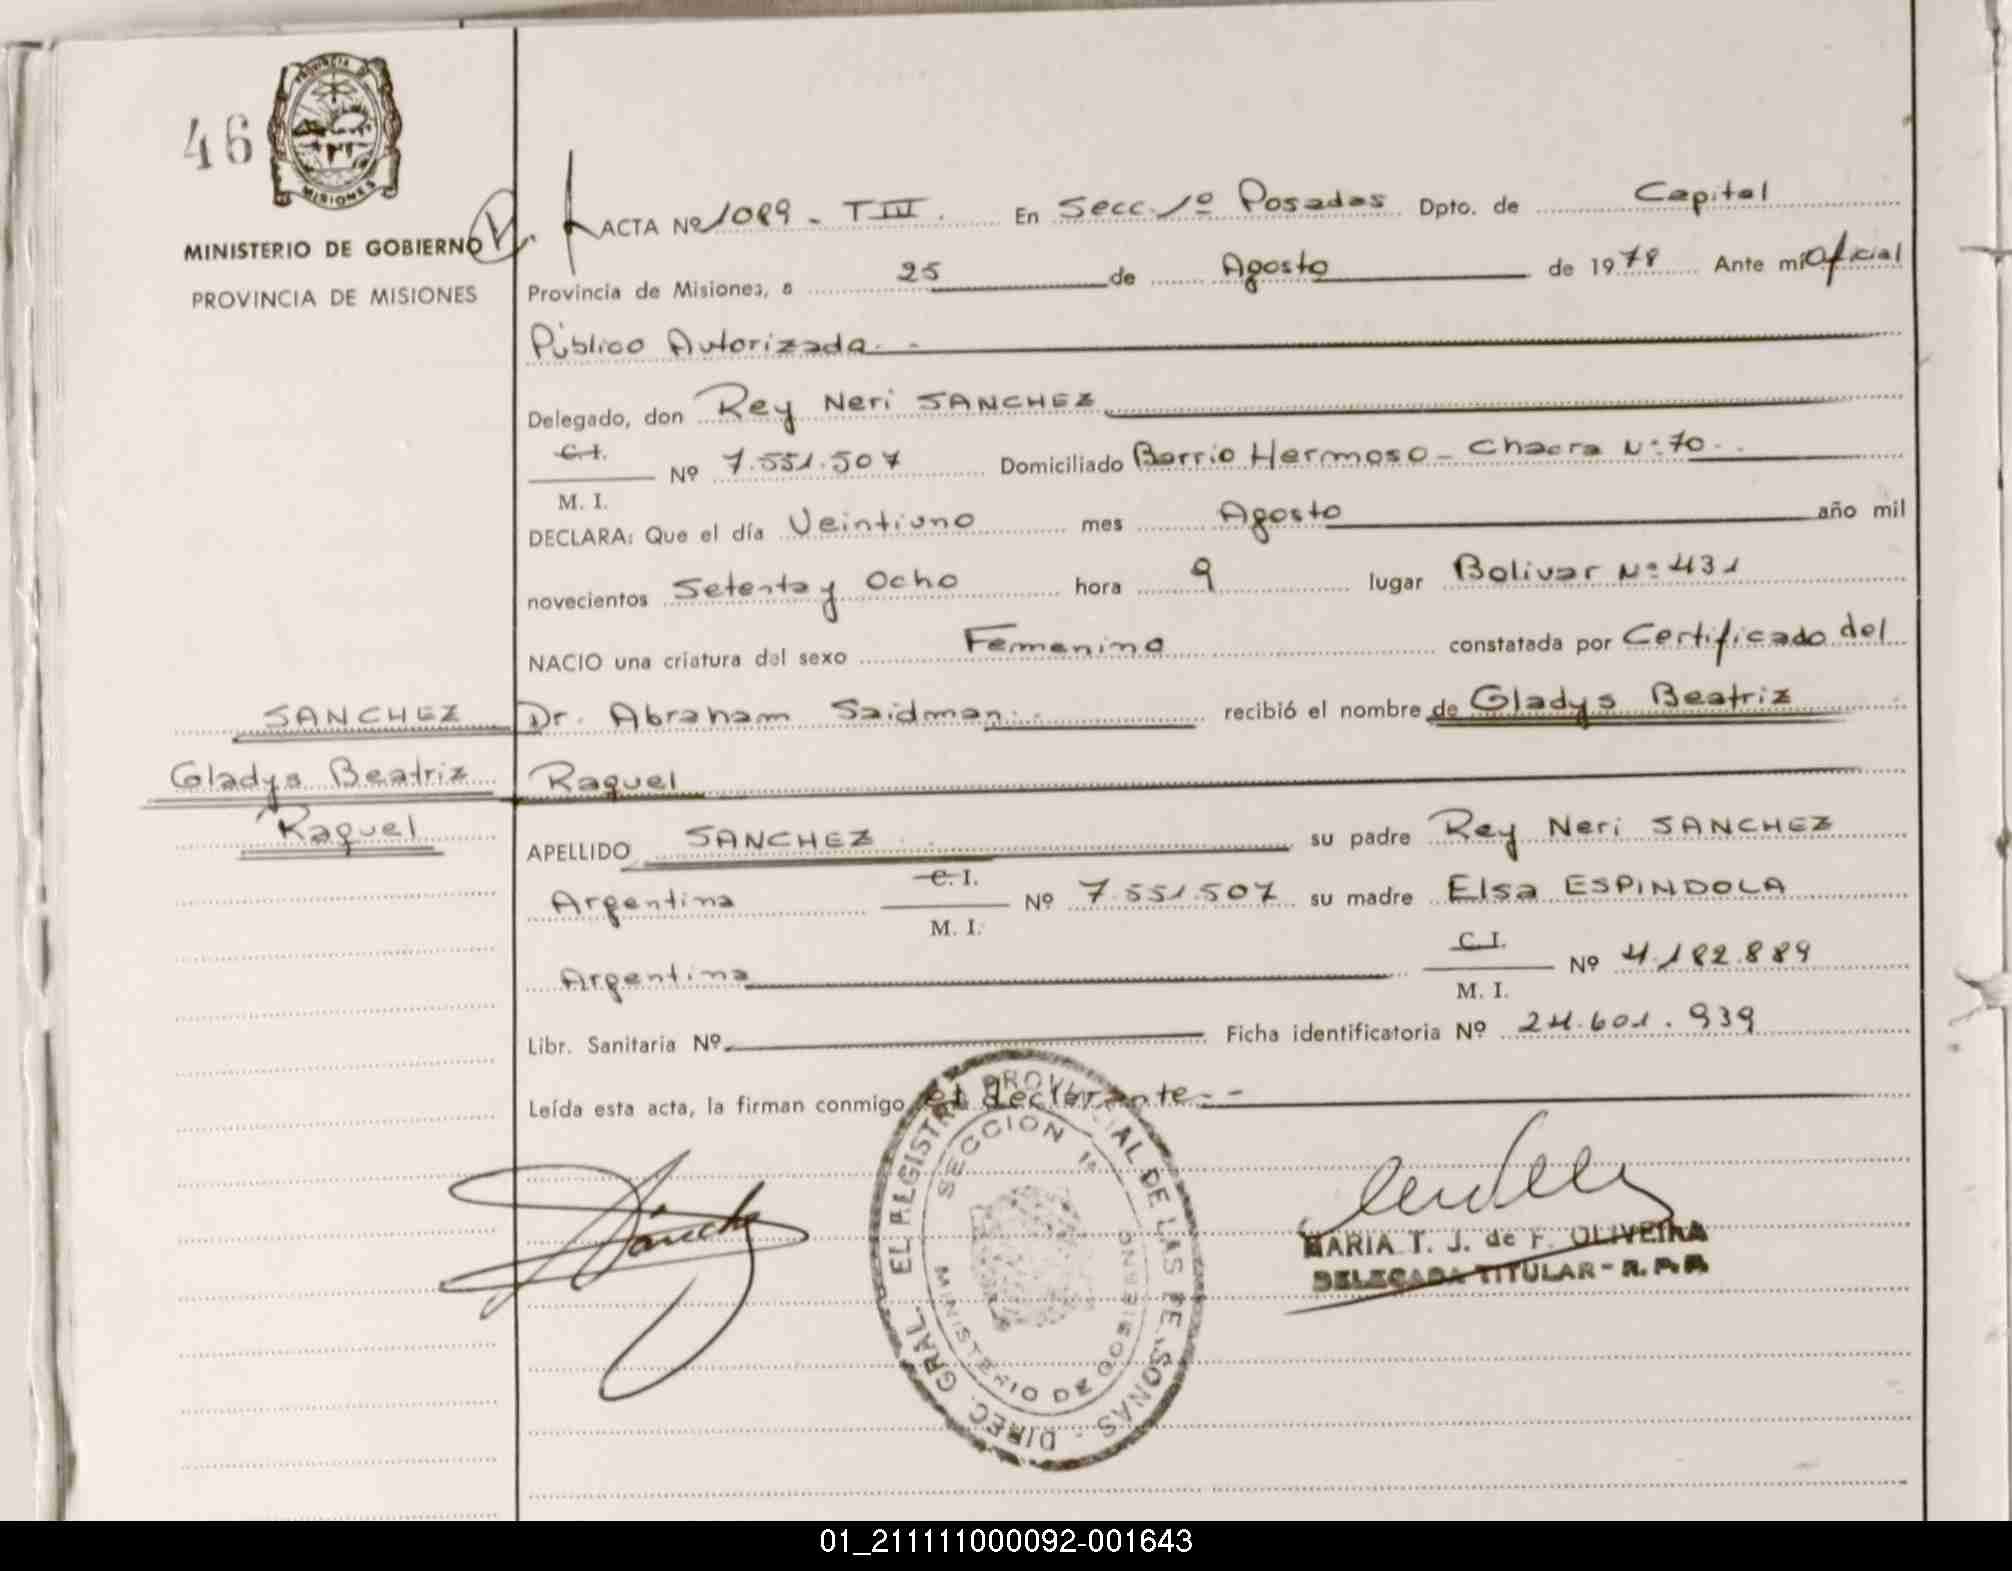 46
PROVINCIA DE
MISIONES
MINISTERIO DE GOBIERNO
PROVINCIA DE MISIONES
ACTA Nº 1089 - T III. En Secc. 1º Posadas Dpto. de Capital
Provincia de Misiones, a 25 de Agosto de 1978 Ante mi Oficial
Público Autorizada. -
Delegado, don Rey Neri SANCHEZ
C.I.
M. I. Nº 7.551.507 Domiciliado Barrio Hermoso - Chacra Nº 70 -.
DECLARA: Que el día Veintiuno mes Agosto año mil
novecientos Setenta y Ocho hora 9 lugar Bolivar Nº 431
NACIO una criatura del sexo Femenino constatada por Certificado del
SANCHEZ
Dr. Abraham Saidman. - recibió el nombre de Gladys Beatriz
Gladys Beatriz
Raquel
Raquel
APELLIDO SANCHEZ su padre Rey Neri SANCHEZ
Argentina C. I.
M. I. Nº 7.551.507 su madre Elsa ESPINDOLA
Argentina C. I.
M. I. Nº 4.182.889
Libr. Sanitaria Nº Ficha identificatoria Nº 24.601.939
Leída esta acta, la firman conmigo el declarante. -
Sánchez
DIREC. GRAL. EL REGISTRO PROVINCIAL DE LAS PERSONAS
SECCION 1ª
MINISTERIO DE GOBIERNO
MARIA T. J. de F. OLIVEIRA
DELEGADA TITULAR - R. P. P.
01_211111000092-001643